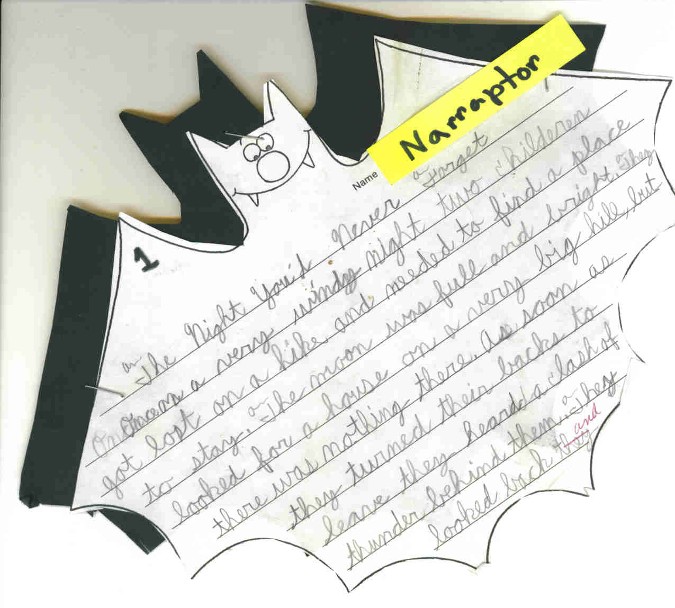 Narraptor
Name
1
The Night You'd Never Forget
on a very windy night two childeren
got lost on a hike and needed to find a place
to stay. The moon was full and bright. They
looked for a house on a very big hill, but
there was nothing there. as soon as
they turned their backs to
leave they heard a clash of
thunder behind them. They
looked back and they